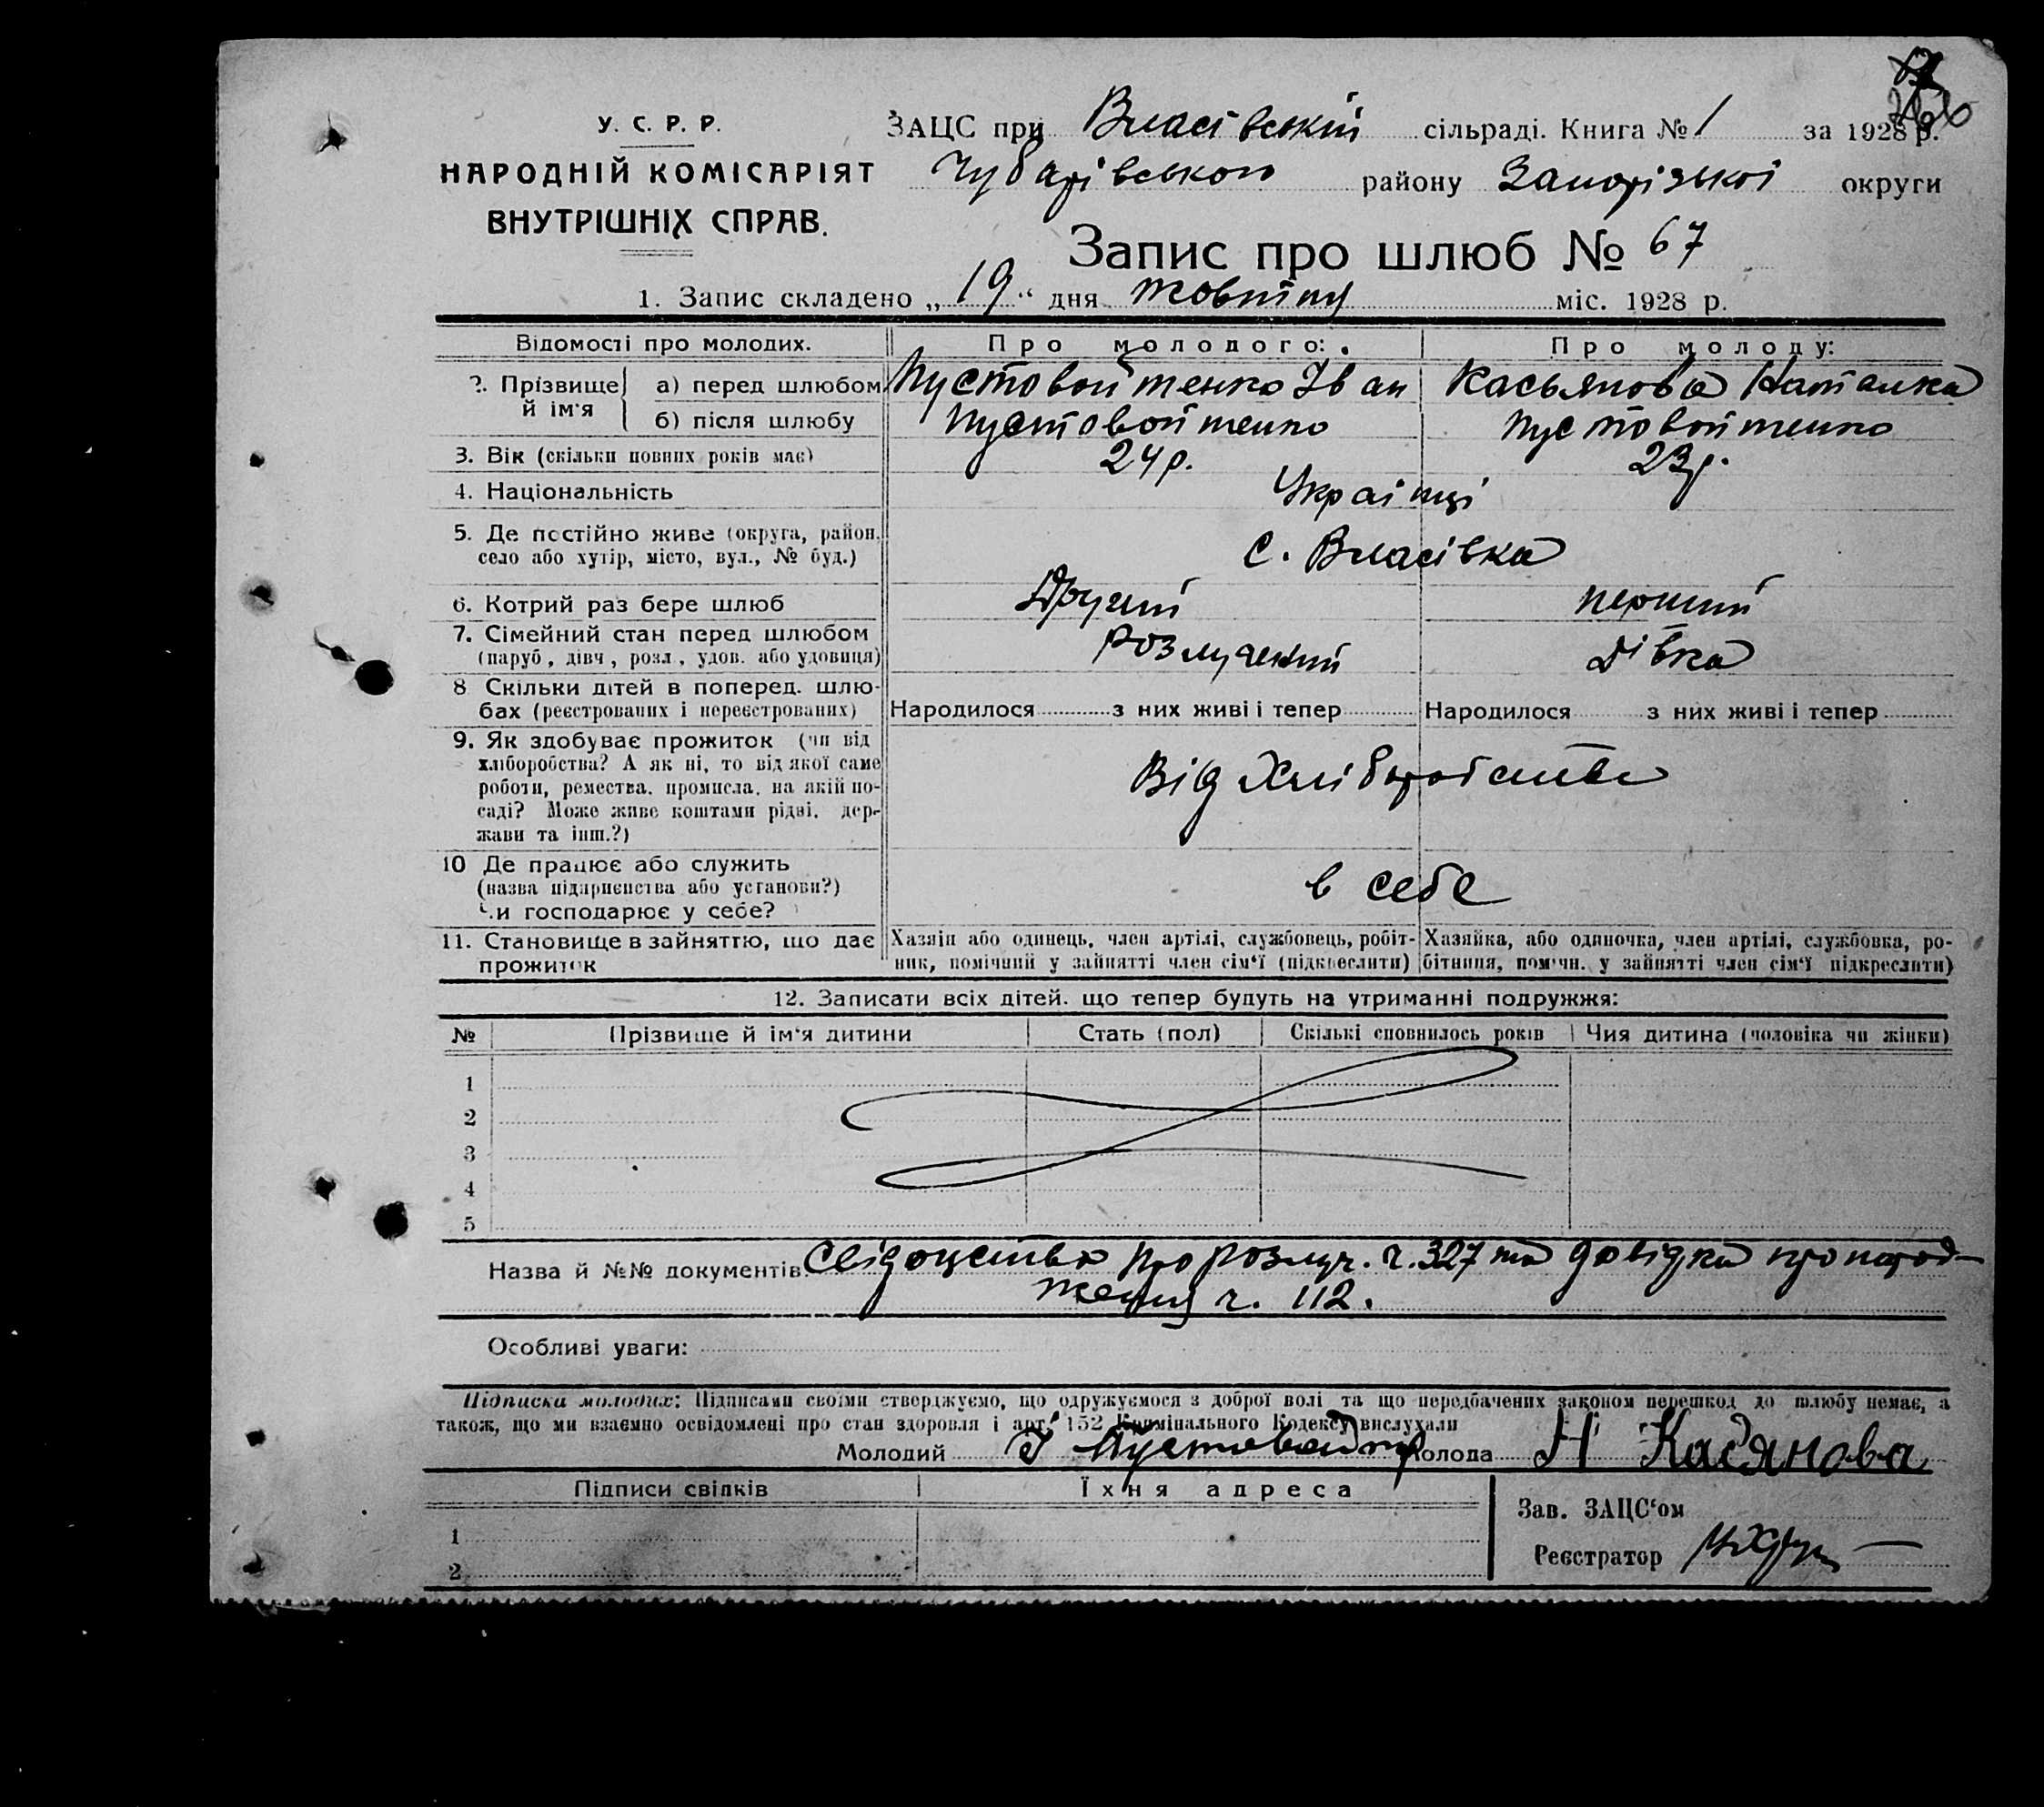 У. С. Р. Р.
НАРОДНІЙ КОМІСАРІЯТ
ВНУТРІШНІХ СПРАВ.
ЗАЦС при Власівській сільраді. Книга № 1 за 1928 р.
Чубарівського району Запорізької округи
Запис про шлюб № 67
1. Запис складено „19“ дня жовтня міс. 1928 р.
Відомості про молодих. Про молодого: Про молоду:
2. Прізвище й ім'я а) перед шлюбом Пустовойтенко Іван Касьянова Наталка
б) після шлюбу Пустовойтенко Пустовойтенко
3. Вік (скільки повних років має) 24 р. 23 р.
4. Національність Українці
5. Де постійно живе (округа, район,
село або хутір, місто, вул., № буд.) с. Власівка
6. Котрий раз бере шлюб Другий перший
7. Сімейний стан перед шлюбом
(паруб, дівч, розл, удов. або удовиця) Розлучений Дівка
8 Скільки дітей в поперед. шлю-
бах (реєстрованих і нереєстрованих) Народилося з них живі і тепер Народилося з них живі і тепер
9. Як здобуває прожиток (чи від
хліборобства? А як ні, то від якої саме
роботи, ремества, промисла, на якій по-
саді? Може живе коштами рідні, дер-
жави та інш.?) Від Хліборобства
10 Де працює або служить
(назва підприємства або установи?)
Чи господарює у себе? в себе
11. Становище в зайняттю, що дає
прожиток
Хазяїн або одинець, член артілі, службовець, робіт-
ник, помічний у зайнятті член сім'ї (підкреслити)
Хазяйка, або одиночка, член артілі, службовка, ро-
бітниця, помічн. у зайнятті член сім'ї підкреслити)
12. Записати всіх дітей. що тепер будуть на утриманні подружжя:
№ Прізвище й ім'я дитини Стать (пол) Скількі сповнилось років Чия дитина (чоловіка чи жінки)
1
2
3
4
5
Назва й №№ документів: Свідоцтво про розлуч. ч. 327 та довідка про народ-
ження ч. 112.
Особливі уваги:
Підписка молодих: Підписами своїми стверджуємо, що одружуємося з доброї волі та що передбачених законом перешкод до шлюбу немає, а
також, що ми взаємно освідомлені про стан здоровля і арт. 152 Кримінального Кодексу вислухали
Молодий І Пустовойт Молода Н Касянова
Підписи свідків Їхня адреса
1
2
Зав. ЗАЦС'ом
Реєстратор